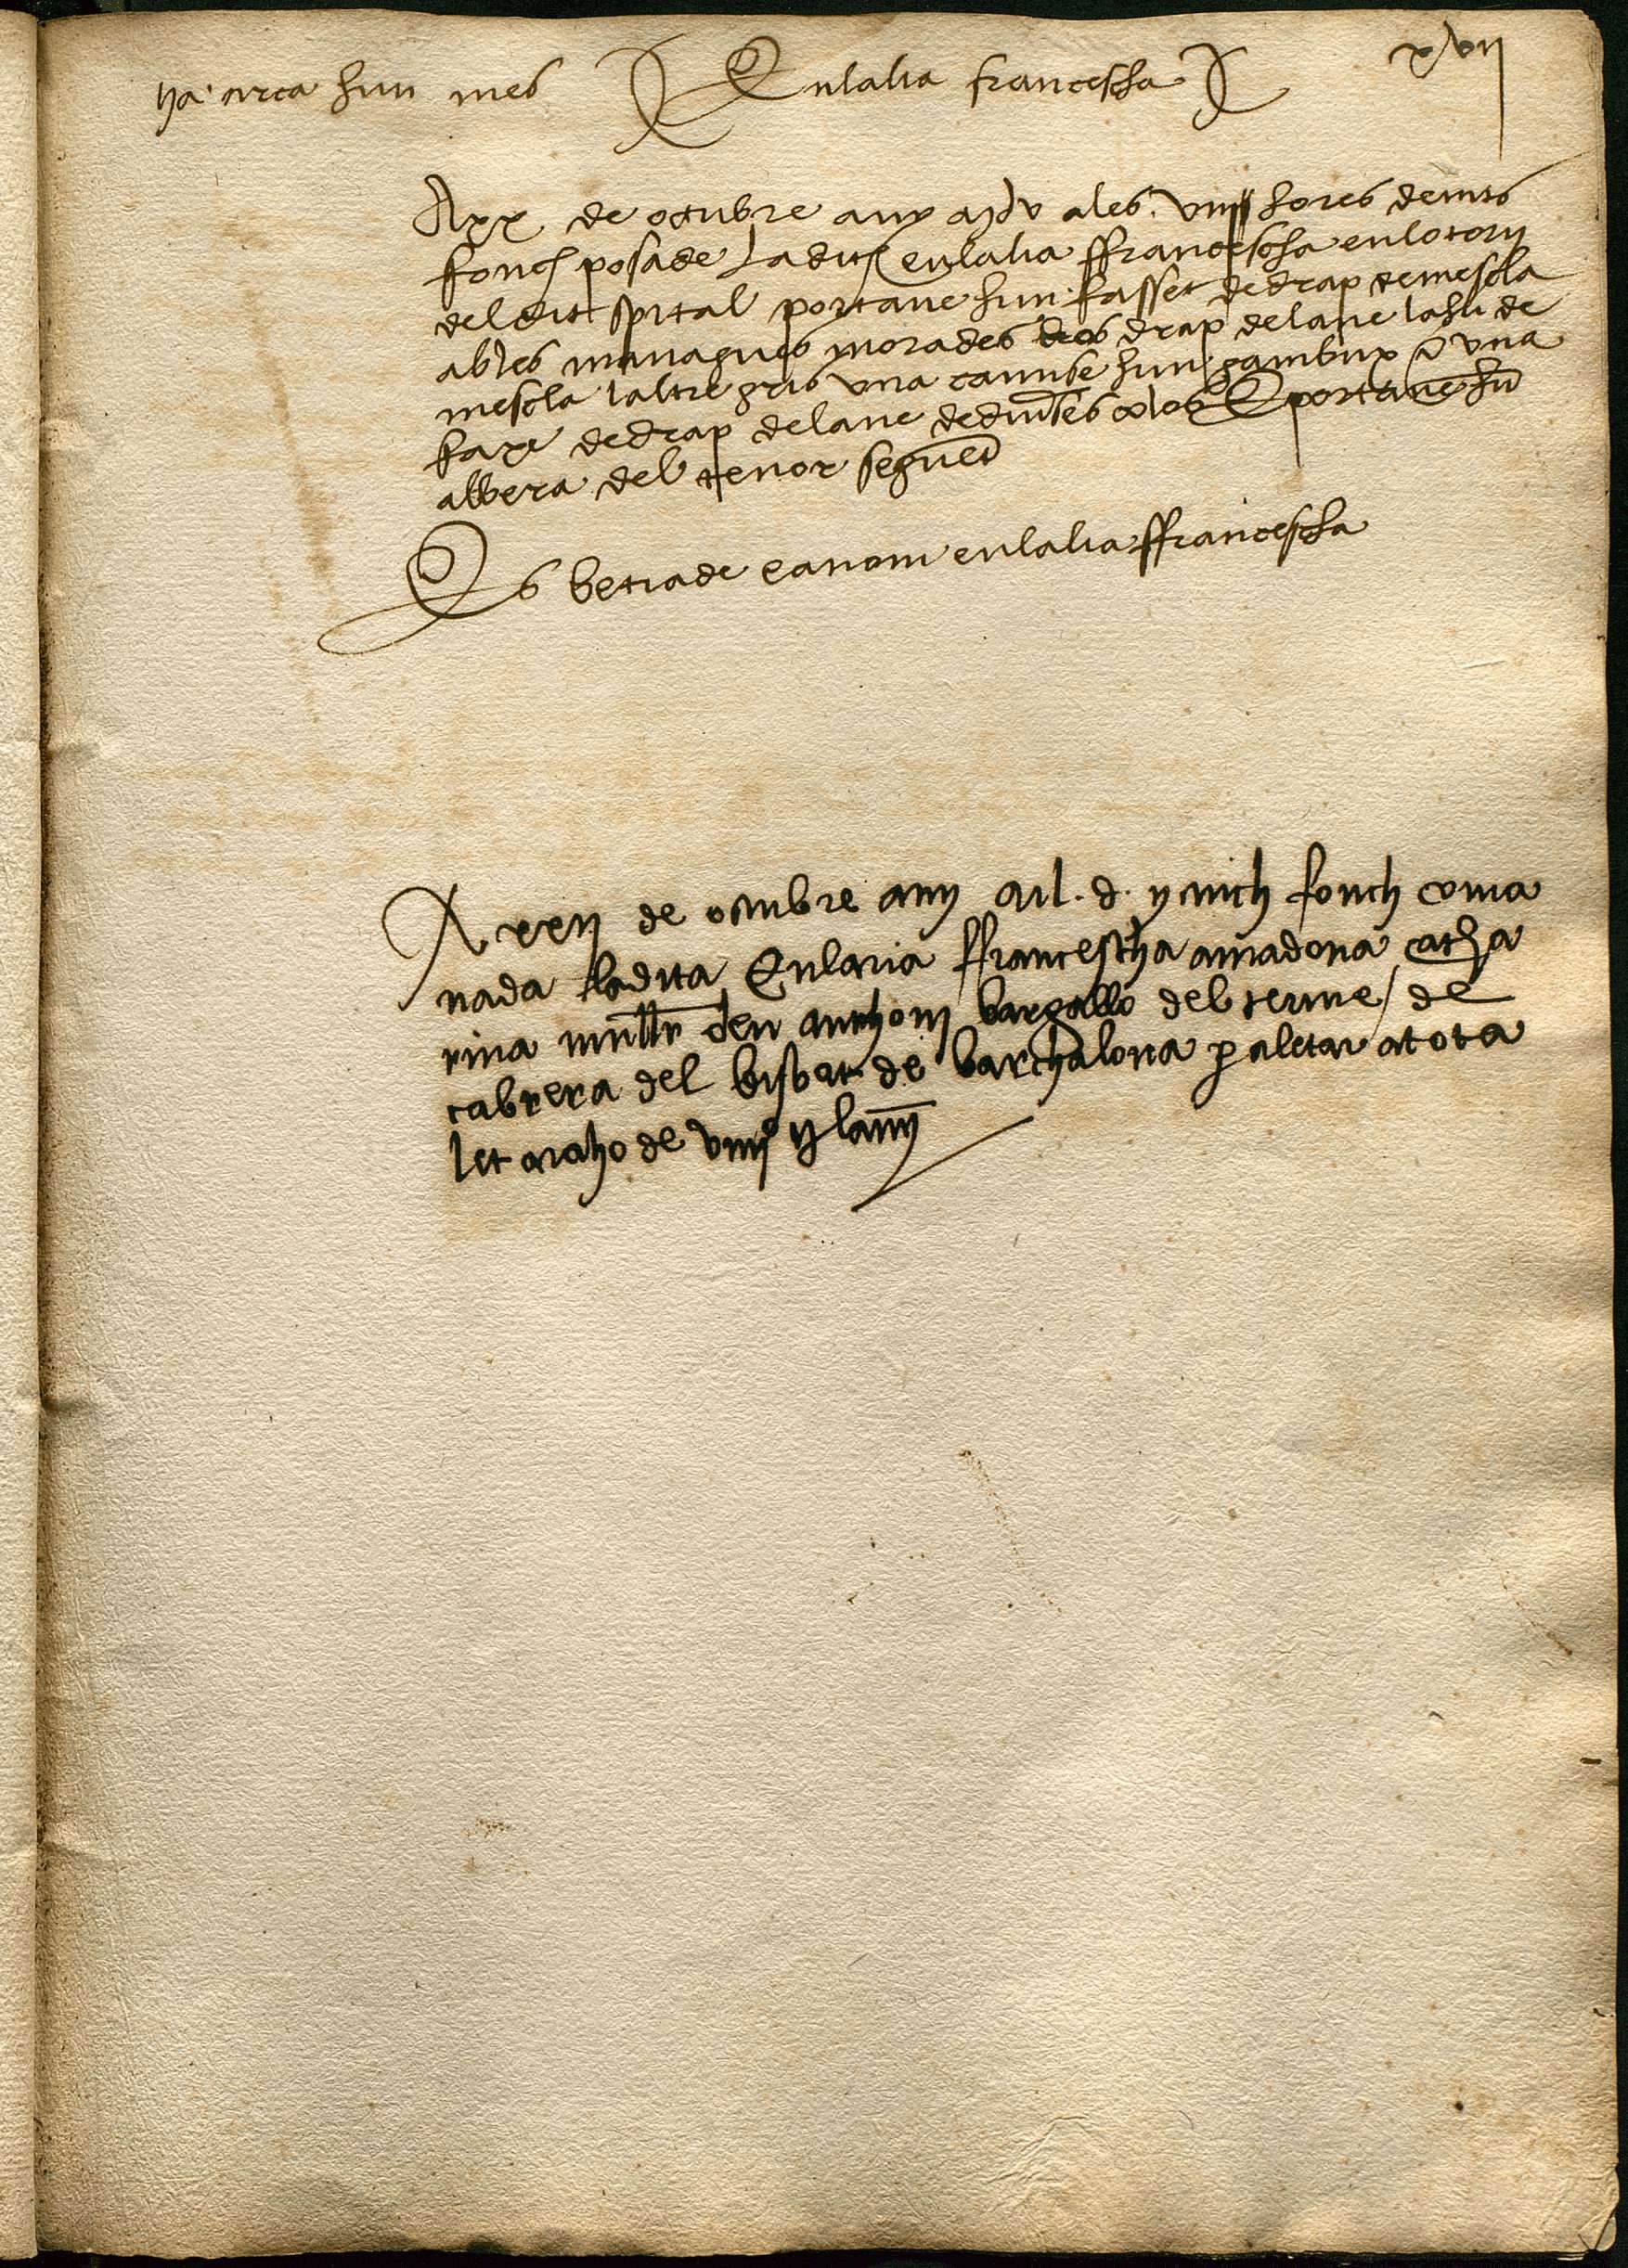 ha circa hun mes Eulalia francescha xvii
A xx de octubre any mdv a les viiii hores de nits
fonch posade La dita eulalia ffrancescha en lo torn
del dit spital portave hun fasset de drap de mescla
ab les manegues morades dos drap de lane la hu de
mescla laltre gris una camise hun gambux e una
faxe de drap de lane de divses colos E portave hũ
albera del tenor seguet
Es betiade ea nom eulalia ffrancescha
A xxii de octubre any Mil . d . y cinch fonch coma
nada la dita Eularia ffrancescha a madona catha
rina mullr den anthoni bargallo del terme / de
cabrera del bisbat de barchalona p aletar a tota
let a raho de viiii ll lany